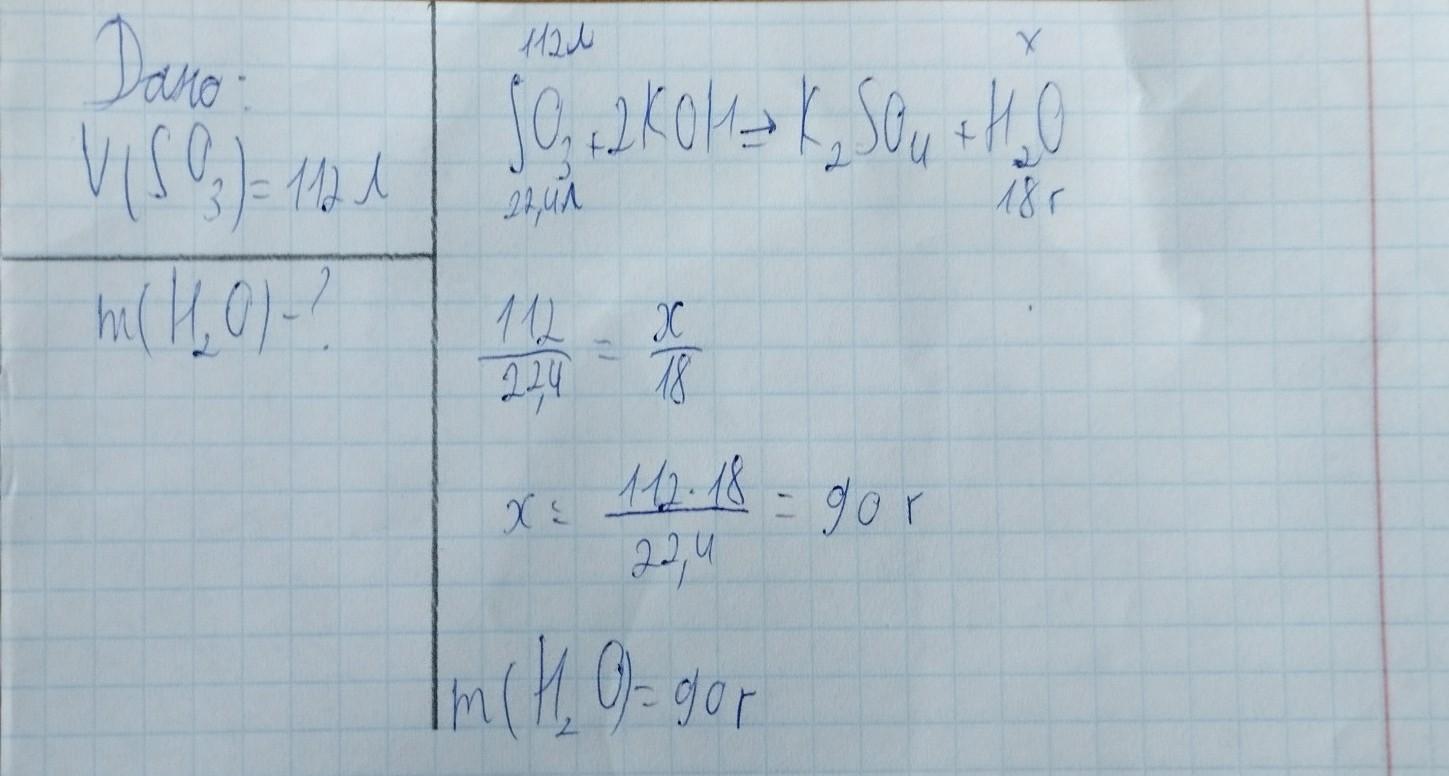 Дано:
V(SO₃) = 112 л
m(H₂O) - ?
112л x
SO₃ + 2KOH → K₂SO₄ + H₂O
22,4л 18 г
112/22,4 = x/18
x = 112 · 18/22,4 = 90 г
m(H₂O) = 90 г